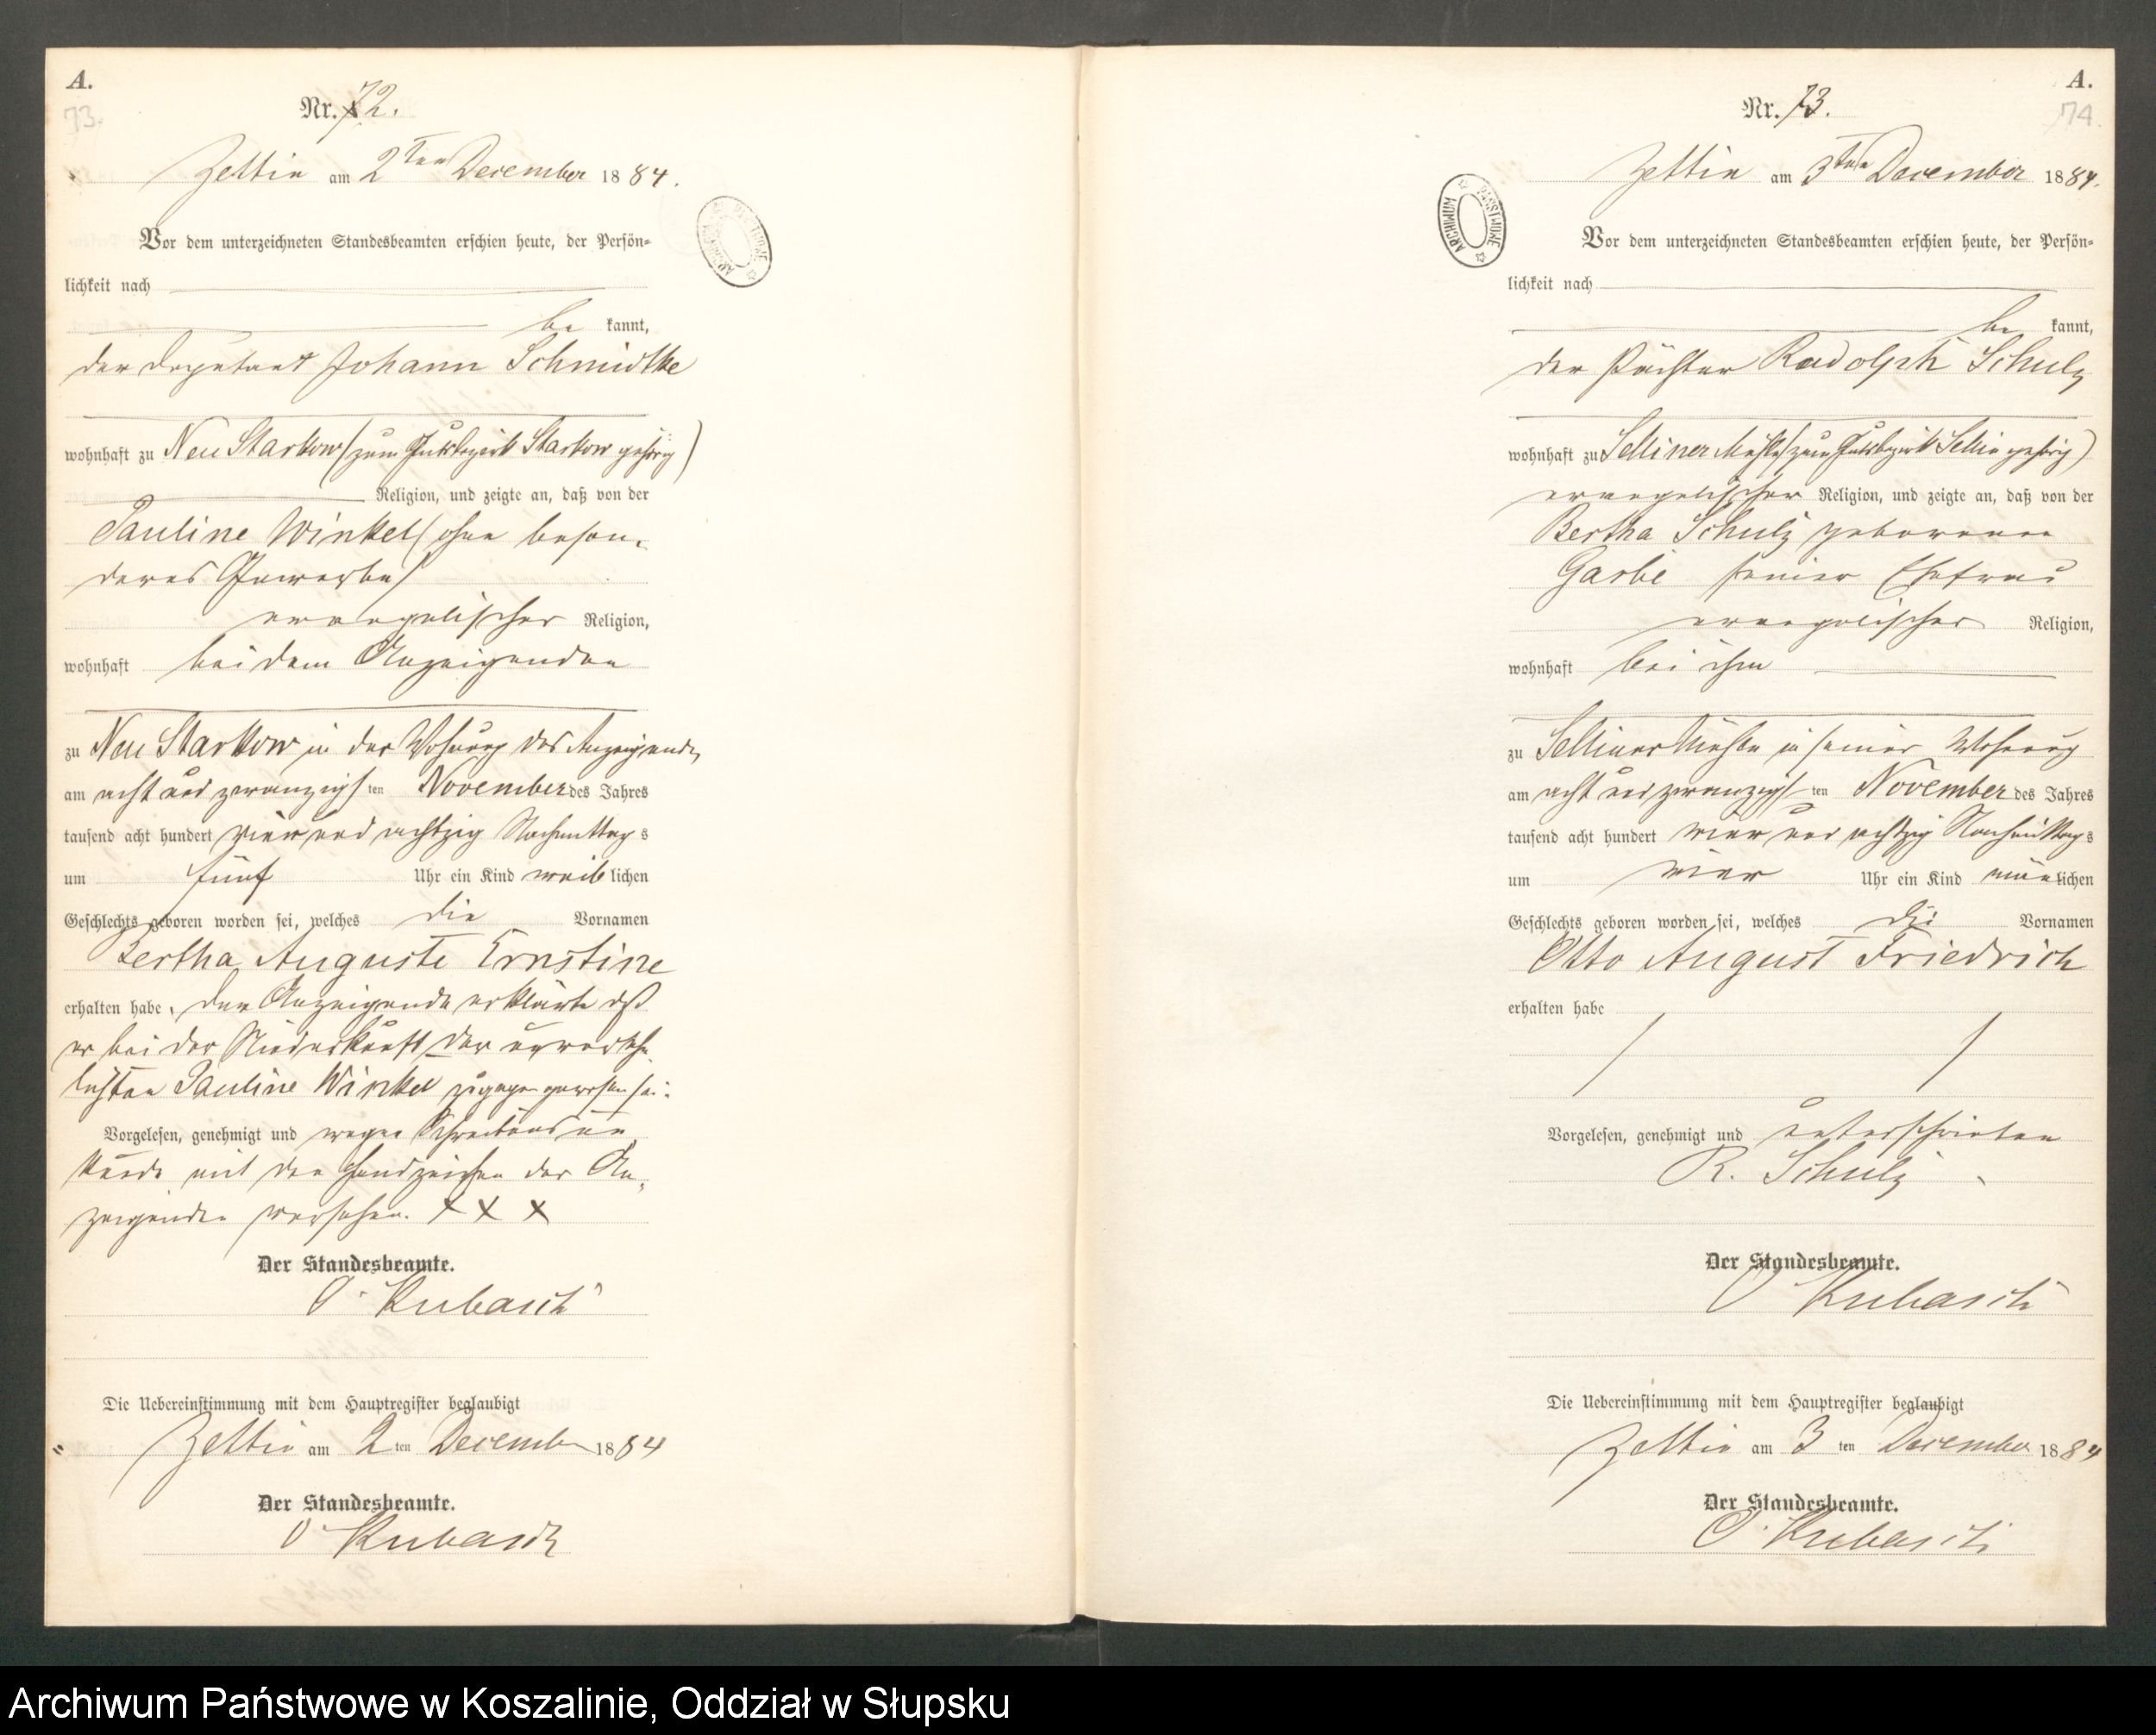 A.
73.
Nr. 72.
Zettin am 2ten December 1884.
Vor dem unterzeichneten Standesbeamten erschien heute, der Persön-
lichkeit nach
be kannt,
der Deputant Johann Schmidtke
wohnhaft zu Neu Starkow (zum Gutsbezirk Starkow gehörig)
Religion, und zeigte an, daß von der
Pauline Winkel (ohne beson-
deres Gewerbe)
evangelischer Religion,
wohnhaft bei dem Anzeigenden
zu Neu Starkow in der Wohnung des Anzeigenden
am acht und zwanzigsten November des Jahres
tausend acht hundert vier und achtzig Nachmittags
um fünf Uhr ein Kind weiblichen
Geschlechts geboren worden sei, welches die Vornamen
Bertha Auguste Ernstine
erhalten habe, der Anzeigende erklärte daß
er bei der Niederkunft der unverehe-
lichten Pauline Winkel zugegen gewesen sei.
Vorgelesen, genehmigt und wegen Schreibensun
kunde mit den Handzeichen des An-
zeigenden versehen. X X X
Der Standesbeamte.
O. Kubasch
Die Uebereinstimmung mit dem Hauptregister beglaubigt
Zettin am 2 ten December 1884
Der Standesbeamte.
O. Kubasch
A.
74.
Nr. 73.
Zettin am 3ten December 1884.
ARCHIWUM PAŃSTWOWE
Vor dem unterzeichneten Standesbeamten erschien heute, der Persön-
lichkeit nach
be kannt,
der Pächter Rudolph Schulz
wohnhaft zu Selliner Mühle (zum Gutsbezirk Sellin gehörig)
evangelischer Religion, und zeigte an, daß von der
Bertha Schulz geborenen
Garbe seiner Ehefrau
evangelischer Religion,
wohnhaft bei ihm
zu Selliner Mühle in seiner Wohnung
am acht und zwanzigsten November des Jahres
tausend acht hundert vier und achtzig Nachmittags
um vier Uhr ein Kind männlichen
Geschlechts geboren worden sei, welches die Vornamen
Otto August Friedrich
erhalten habe
Vorgelesen, genehmigt und unterschrieben
R. Schulz
Der Standesbeamte.
O Kubasch
Die Uebereinstimmung mit dem Hauptregister beglaubigt
Zettin am 3 ten December 1884
Der Standesbeamte.
O. Kubasch
Archiwum Państwowe w Koszalinie, Oddział w Słupsku